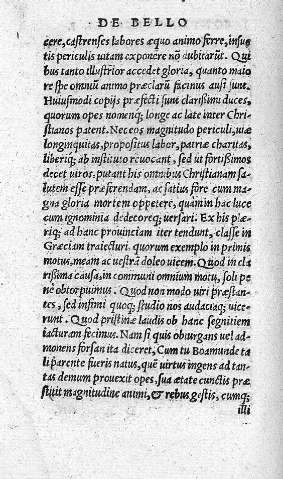 DE BELLO
cere, castrenses labores æquo animo ferre, insue
tis periculis uitam exponere nõ dubitarũt. Qui
bus tanto illustrior accedet gloria, quanto maio
re spe omniũ animo præclarũ facinus ausi sunt.
Huiusmodi copijs præfecti sunt clarissimi duces,
quorum opes nomenq; longe ac late inter Chri
stianos patent. Nec eos magnitudo periculi, uiæ
longinquitas, propositus labor, patriæ charitas,
liberiq; ab instituto reuocant, sed ut fortissimos
decet uiros. putant his omnibus Christianam sa
lutem esse præferendam, ac satius fore cum ma
gna gloria mortem oppetere, quam in hac luce
cum ignominia dedecoreq; uersari. Ex his plæ
riq; ad hanc prouinciam iter tendunt, classe in
Græciam traiecturi. quorum exemplo in primis
motus, meam ac uestrã doleo uicem. Quod in cla
rissima causa, in communi omnium motu, soli pe
ne obtorpuimus. Quod non modo uiri præstan
tes, sed infimi quoq; studio nos audaciaq; uice
runt. Quod pristinæ laudis ob hanc segnitiem
iacturam fecimus. Nam si quis obiurgans uel ad
monens forsan ita diceret, Cum tu Boamunde ta
li parente fueris natus, quẽ uirtus ingens ad tan
tas demum prouexit opes, sua ætate cunctis præ
stitit magnitudine animi, & rebus gestis, cumq;
illi